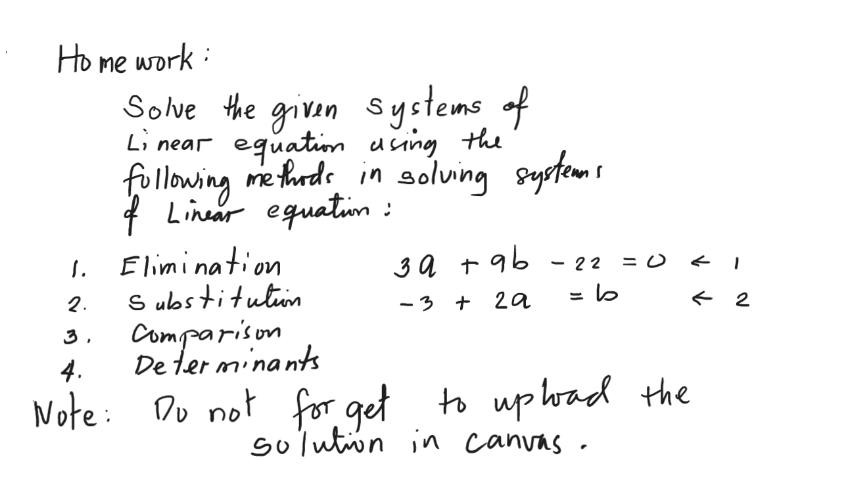 Homework:
Solve the given systems of
Linear equation using the
following methods in solving systems
of Linear equation:
1. Elimination 3a + 9b - 22 = 0 ← 1
2. Substitution -3 + 2a = b ← 2
3. Comparison
4. Determinants
Note: Do not forget to upload the
solution in canvas.